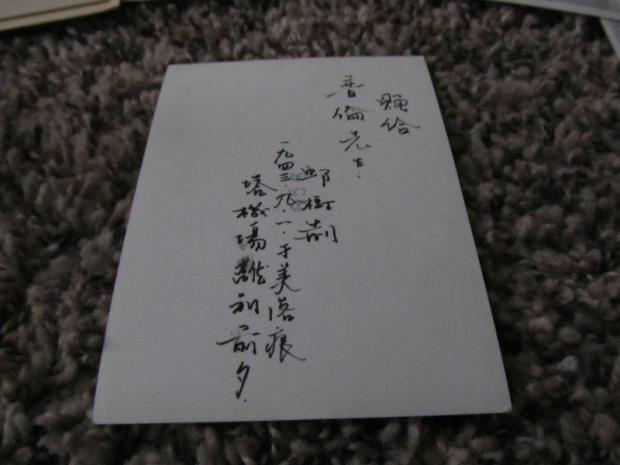 贈給
普倫先生:
邱樹
一九四三.九.一.于美落痕
塔機場離別前夕.